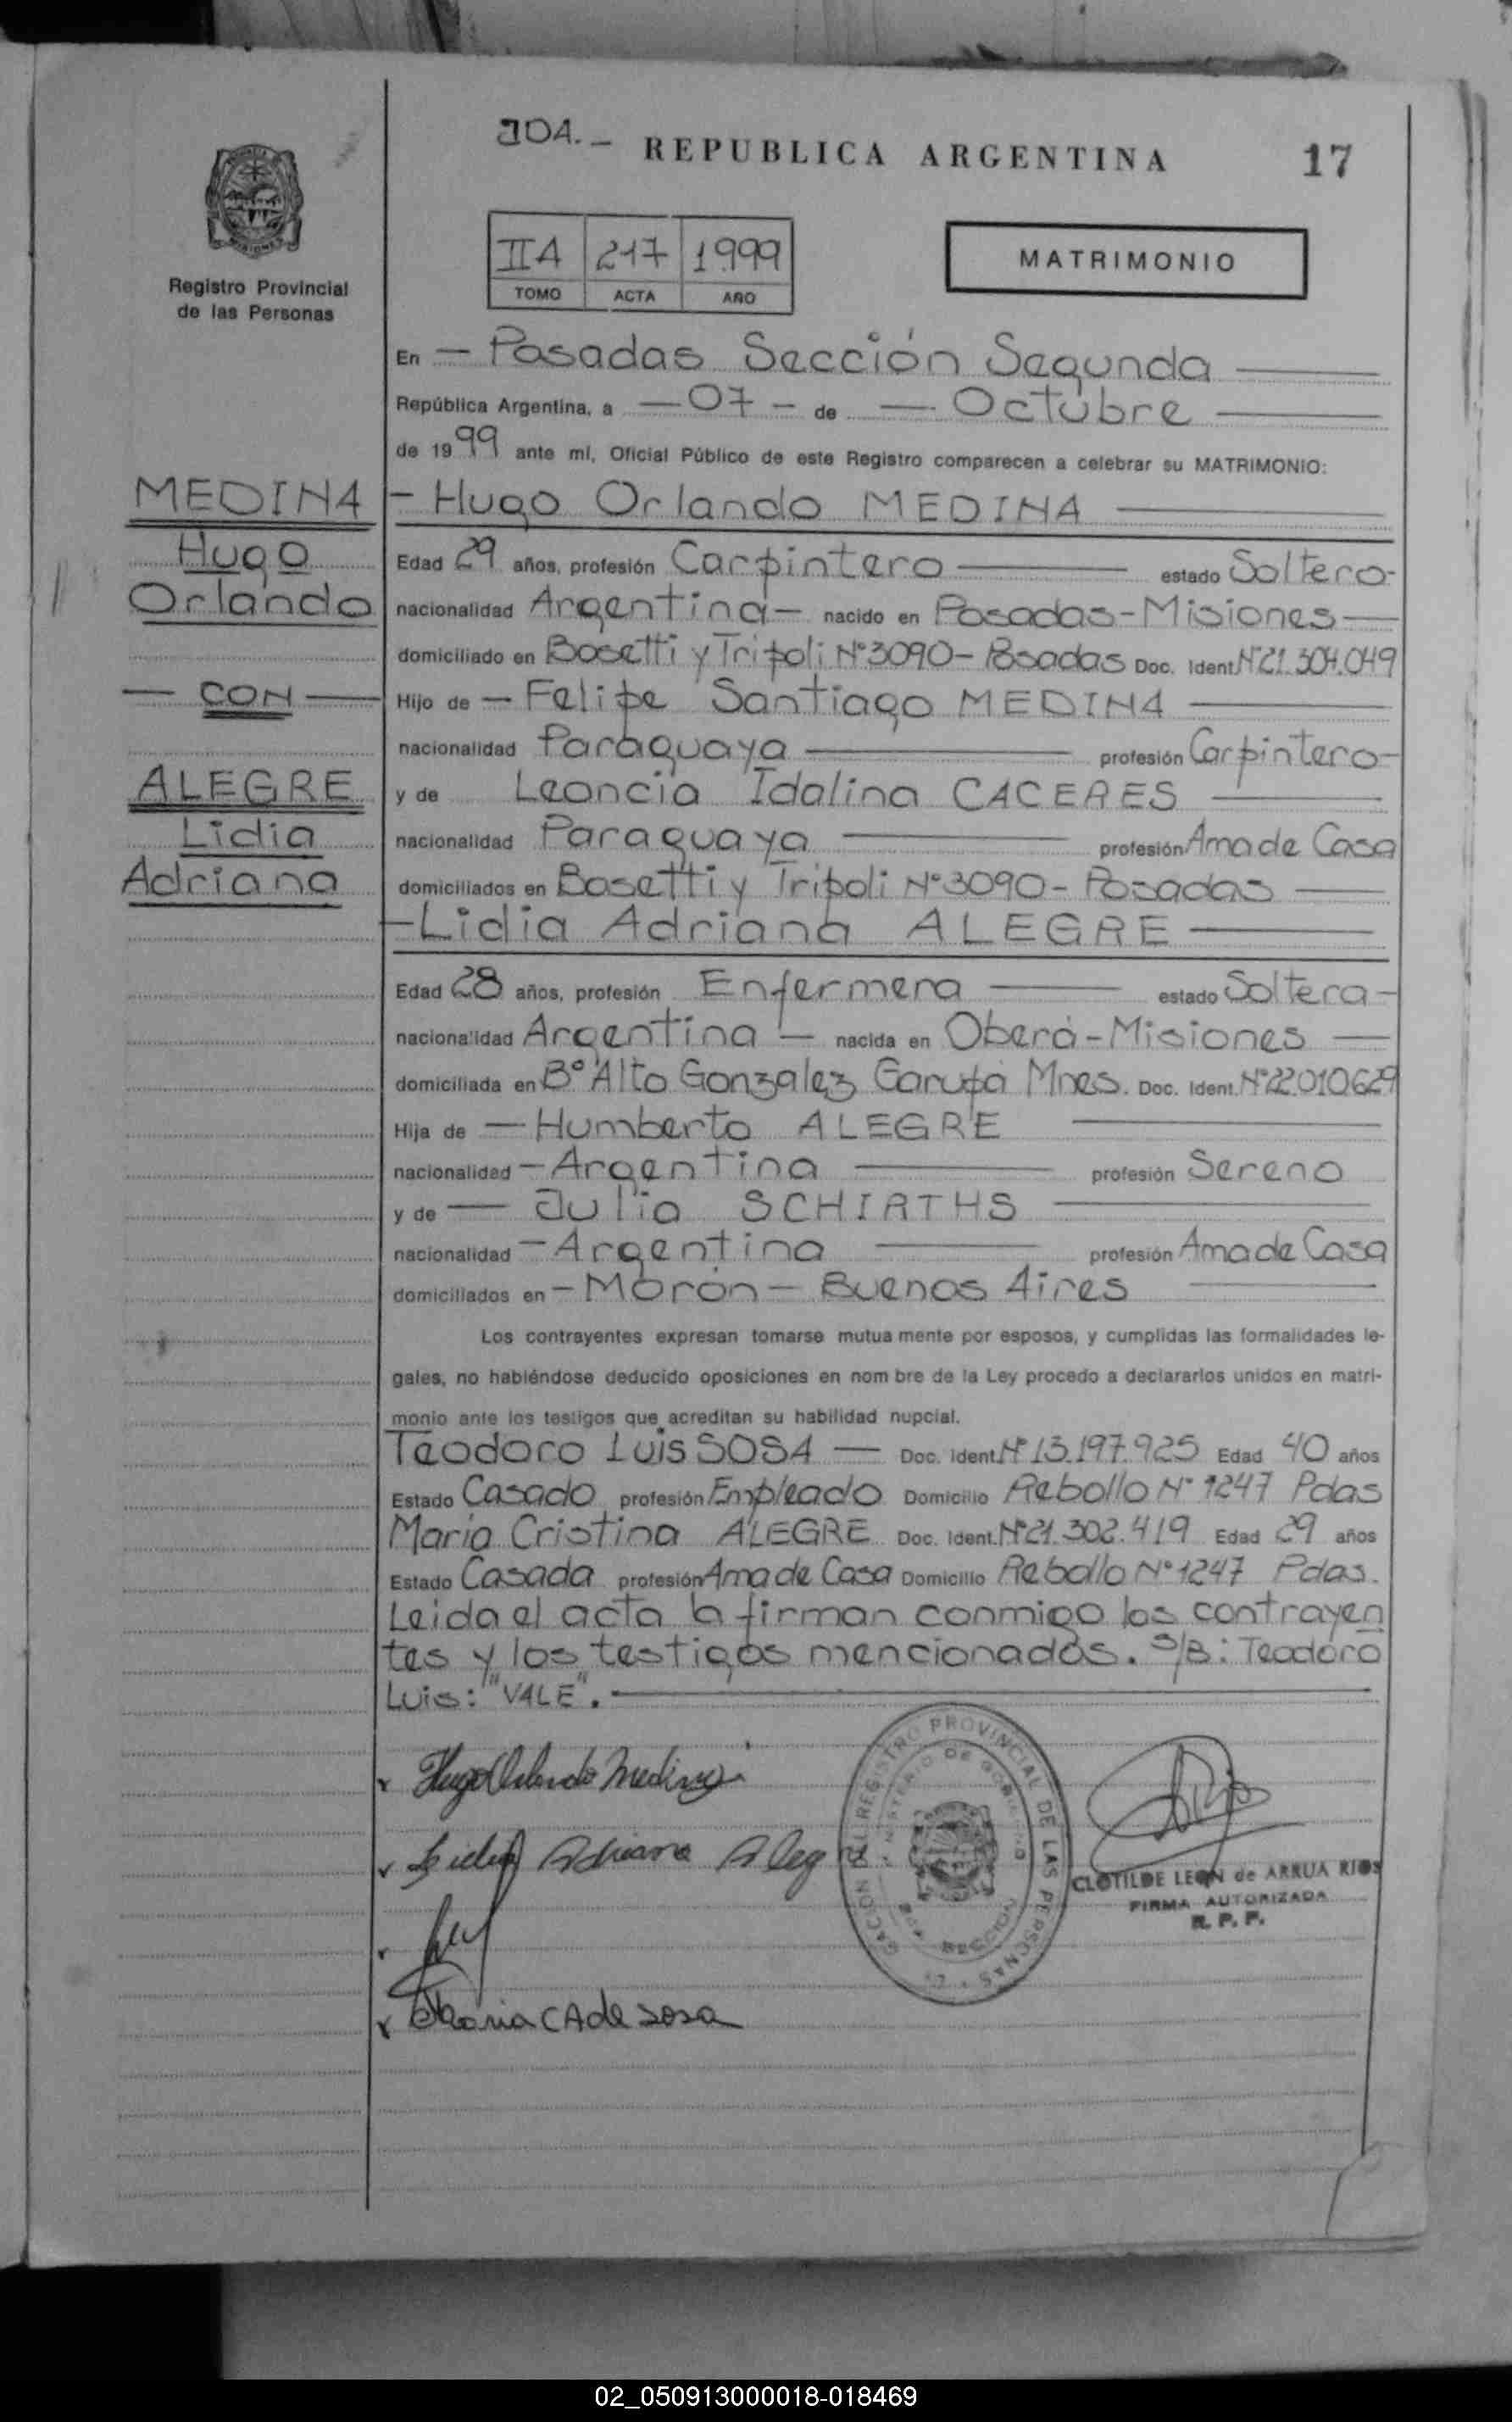 104.-
REPUBLICA ARGENTINA
17
Registro Provincial
de las Personas
IIA 217 1999
TOMO ACTA AÑO
MATRIMONIO
En - Posadas Sección Segunda
República Argentina, a - 07 - de - Octubre
de 1999 ante mí, Oficial Público de este Registro comparecen a celebrar su MATRIMONIO:
MEDINA
Hugo
Orlando
CON
ALEGRE
Lidia
Adriana
- Hugo Orlando MEDINA
Edad 29 años, profesión Carpintero estado Soltero-
nacionalidad Argentina - nacido en Posadas-Misiones
domiciliado en Bosetti y Tripoli N°3090- Posadas Doc. Ident. N°21.304.049
Hijo de - Felipe Santiago MEDINA
nacionalidad Paraguaya profesión Carpintero-
y de Leoncia Idalina CACERES
nacionalidad Paraguaya profesión Ama de Casa
domiciliados en Bosetti y Tripoli N°3090- Posadas
- Lidia Adriana ALEGRE
Edad 28 años, profesión Enfermera estado Soltera-
nacionalidad Argentina - nacida en Oberá-Misiones
domiciliada en B° Alto Gonzalez Garupá Mnes. Doc. Ident. N°22.010629
Hija de - Humberto ALEGRE
nacionalidad - Argentina profesión Sereno
y de - Julia SCHIRTHS
nacionalidad - Argentina profesión Ama de Casa
domiciliados en - Morón - Buenos Aires
Los contrayentes expresan tomarse mutua mente por esposos, y cumplidas las formalidades le-
gales, no habiéndose deducido oposiciones en nom bre de la Ley procedo a declararlos unidos en matri-
monio ante los testigos que acreditan su habilidad nupcial.
Teodoro Luis SOSA - Doc. Ident. N°13.197.925 Edad 40 años
Estado Casado profesión Empleado Domicilio Rebollo N° 1247 Pdas
María Cristina ALEGRE Doc. Ident. N°21.302.419 Edad 29 años
Estado Casada profesión Ama de Casa Domicilio Rebollo N°1247 Pdas.
Leida el acta la firman conmigo los contrayen
tes y los testigos mencionados. S/B: Teodoro
Luis: "VALE".
Hugo Orlando Medina
Lidia Adriana Alegre
María C A de Sosa
REGISTRO PROVINCIAL DE LAS PERSONAS
CLOTILDE LEON de ARRUA RIOS
FIRMA AUTORIZADA
R. P. P.
02_050913000018-018469